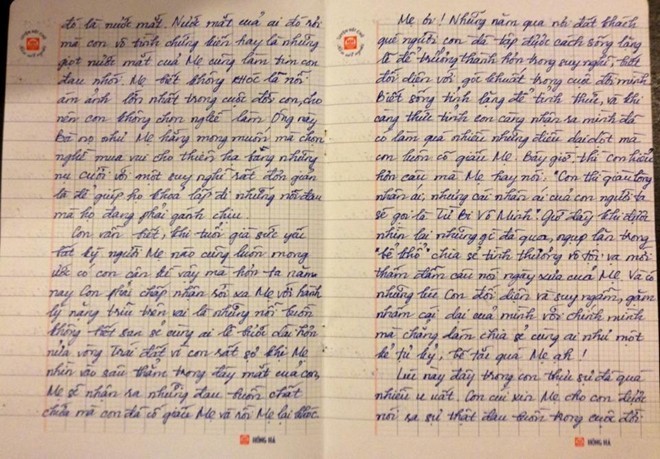 đó là nước mắt. Nước mắt của ai đó rồi
mà con vô tình chứng kiến hay là những
giọt nước mắt của Mẹ cũng làm tim con
đau nhói. Mẹ biết không KHÓC là nỗi
ám ảnh lớn nhất trong cuộc đời con, cho
nên con không chọn nghề làm Ông này
Bà nọ như Mẹ hằng mong muốn mà chọn
nghề mua vui cho thiên hạ bằng những
nụ cười với một suy nghĩ rất đơn giản
là để giúp họ khoả lấp đi những nỗi đau
mà họ đang phải gánh chịu.
Con vẫn biết, khi tuổi già sức yếu
bất kỳ người Mẹ nào cũng luôn mong
ước có con cận kề vậy mà hơn ba năm
nay Con phải chấp nhận rời xa Mẹ với hành
lý nặng trĩu trên vai là những nỗi buồn
không biết san sẻ cùng ai là biệt dài hơn
nửa vòng Trái đất vì con rất sợ khi Mẹ
nhìn vào sâu thẳm trong đáy mắt của con,
Mẹ sẽ nhận ra những đau buồn chất
chứa mà con đã cố giấu Mẹ và rồi Mẹ lại khóc
HỒNG HÀ
Mẹ ơi! Những năm qua nơi đất khách
quê người con đã tập được cách sống lặng
lẽ để trưởng thành hơn trong suy nghĩ, biết
đối diện với góc khuất trong cuộc đời mình
Biết sống tĩnh lặng để tỉnh thức, và khi
càng thức tỉnh con càng nhận ra mình đã
có làm quá nhiều những điều dại dột mà
con luôn cố giấu Mẹ. Bây giờ thì con hiểu
hơn câu mà Mẹ hay nói: "Con thì giàu lòng
nhân ái, nhưng cái nhân ái của con người ta
sẽ gọi là Từ Bi Vô Minh". Giờ đây khi được
nhìn lại những gì đã qua, ngụp lặn trong
"bể khổ" chia sẻ tình thương vô tội và mới
thấm đẫm câu nói ngày xưa của Mẹ. Và có
những lúc Con đối diện và suy ngẫm, gặm
nhấm cái dại của mình với chính mình
mà chẳng dám chia sẻ cùng ai như một
kẻ tự kỷ, bê tha quá Mẹ ạh!
Lúc này đây trong con thực sự đã quá
nhiều u uất. Con cúi xin Mẹ cho con được
nói ra sự thật đau buồn trong cuộc đời
HỒNG HÀ